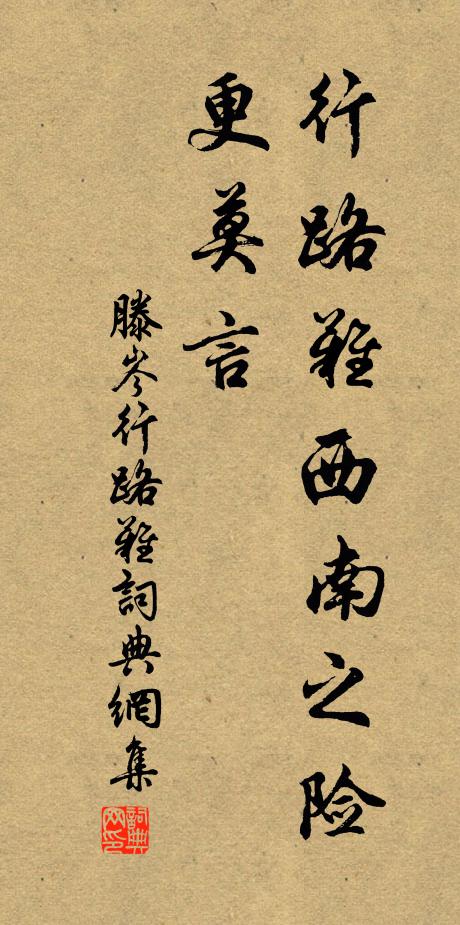 行路難西南之险
更莫言
滕岑行路難詞典網集
詞典
网印